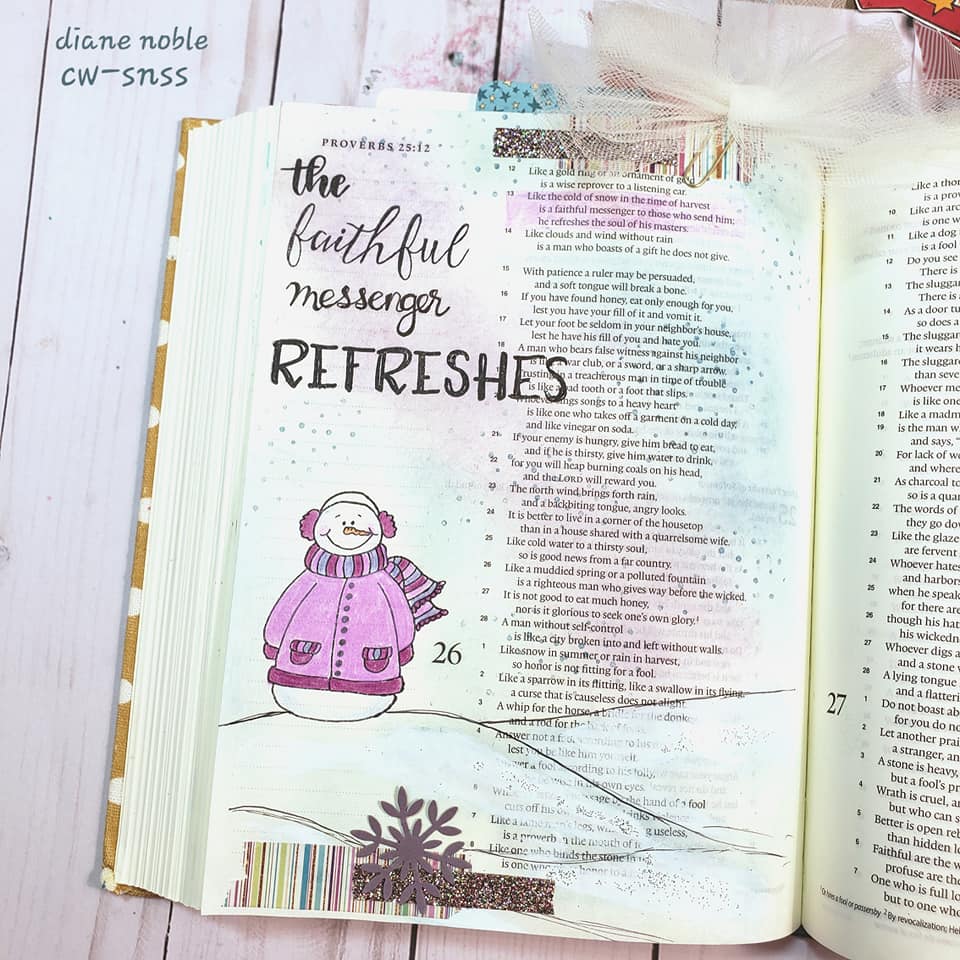 diane noble
cw-snss
PROVERBS 25:12
the
faithful
messenger
REFRESHES
12 Like a gold ring or an ornament of gold
is a wise reprover to a listening ear.
13 Like the cold of snow in the time of harvest
is a faithful messenger to those who send him;
he refreshes the soul of his masters.
14 Like clouds and wind without rain
is a man who boasts of a gift he does not give.
15 With patience a ruler may be persuaded,
and a soft tongue will break a bone.
16 If you have found honey, eat only enough for you,
lest you have your fill of it and vomit it.
17 Let your foot be seldom in your neighbor's house,
lest he have his fill of you and hate you.
18 A man who bears false witness against his neighbor
is like a war club, or a sword, or a sharp arrow.
Trusting in a treacherous man in time of trouble
is like a bad tooth or a foot that slips.
Whoever sings songs to a heavy heart
is like one who takes off a garment on a cold day,
and like vinegar on soda.
21 If your enemy is hungry, give him bread to eat,
and if he is thirsty, give him water to drink,
22 for you will heap burning coals on his head,
and the LORD will reward you.
23 The north wind brings forth rain,
and a backbiting tongue, angry looks.
24 It is better to live in a corner of the housetop
than in a house shared with a quarrelsome wife.
25 Like cold water to a thirsty soul,
so is good news from a far country.
26 Like a muddied spring or a polluted fountain
is a righteous man who gives way before the wicked.
27 It is not good to eat much honey,
nor is it glorious to seek one's own glory.¹
28 A man without self-control
is like a city broken into and left without walls.
26
1 Like snow in summer or rain in harvest,
so honor is not fitting for a fool.
2 Like a sparrow in its flitting, like a swallow in its flying,
a curse that is causeless does not alight.
3 A whip for the horse, a bridle for the donkey
and a rod for the back of fools.
4 Answer not a fool according to his
lest you be like him yourself.
Answer a fool according to his folly,
be wise in his own eyes.
6 message by the hand of a fool
cuts off his drinks violence.
7 Like a lame man's legs, useless,
is a proverb in the mouth of
Like one who binds the stone in
is one who honor to a
Like a
is a
10 Like an
is one
11 Like a dog
is a fool
12 Do you see
There is
13 The sluggar
There is a
14 As a door tu
so does a
15 The sluggar
it wears h
16 The sluggar
than seve
17 Whoever me
is like one
18 Like a madm
19 is the man w
and says, "
20 For lack of w
and where
21 As charcoal to
so is a quar
22 The words of
they go dow
23 Like the glaze
are fervent
24 Whoever hates
and harbors
25 when he speak
for there are
26 though his hat
his wickedn
27 Whoever digs a
and a stone w
28 A lying tongue
and a flatteri
27
1 Do not boast abo
for you do no
2 Let another prai
a stranger, an
3 A stone is heavy,
but a fool's pr
4 Wrath is cruel, ar
but who can s
5 Better is open reb
than hidden lo
6 Faithful are the w
profuse are the
7 One who is full lo
but to one who
¹ Or hires a fool or passersby ² By revocalization; He